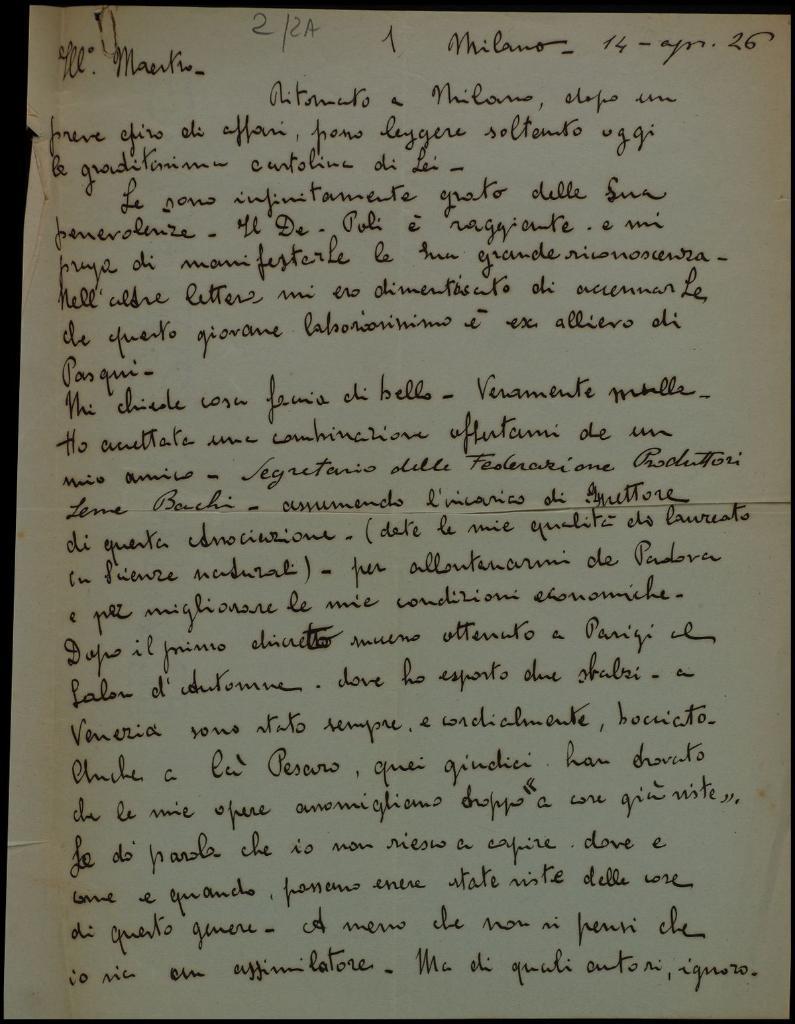 2/2A 1 Milano - 14 - apr. 26
Ill.º Maestro -
Ritornato a Milano, dopo un
breve giro di affari, posso leggere soltanto oggi
la graditissima cartolina di Lei -
Le sono infinitamente grato della Sua
benevolenza - Il De - Poli è raggiante. e mi
prega di manifestarLe la Sua grande riconoscenza -
Nell'altra lettera mi ero dimenticato di accennarLe
che questo giovane laboriosissimo è ex allievo di
Pasqui -
Mi chiede cosa faccia di bello - Veramente nulla -
Ho accettata una combinazione offertami da un
mio amico - Segretario della Federazione Produttori
Seme Bachi - assumendo l'incarico di Ispettore
di questa Associazione - (date le mie qualità di laureato
in Scienze naturali) - per allontanarmi da Padova
e per migliorare le mie condizioni economiche -
Dopo il primo discreto successo ottenuto a Parigi al
Salon d'Automne. dove ho esposto due sbalzi - a
Venezia sono stato sempre, e cordialmente, bocciato -
Anche a Cà Pesaro, quei giudici han trovato
che le mie opere assomigliano troppo "a cose già viste".
Le dò parola che io non riesco a capire. dove e
come e quando, possano essere state viste delle cose
di questo genere - A meno che non si pensi che
io sia un assimilatore - Ma di quali autori, ignoro -